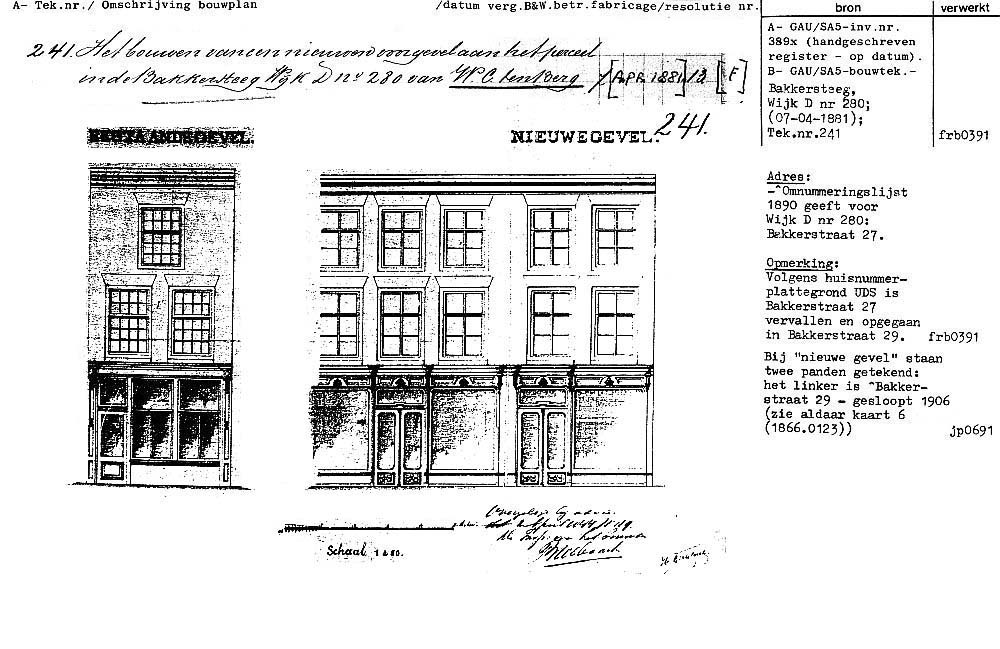 A- Tek.nr./ Omschrijving bouwplan /datum verg.B&W.betr.fabricage/resolutie nr. bron verwerkt
241. Het bouwen van een nieuwen voorgevel aan het perceel
in de Bakkersteeg Wijk D no 280 van W.C. ten Berg / [APR 1881] 12 [F]
NIEUWEGEVEL. 241.
Schaal 1 à 50.
A- GAU/SA5-inv.nr.
389x (handgeschreven
register - op datum).
B- GAU/SA5-bouwtek.-
Bakkersteeg,
Wijk D nr 280;
(07-04-1881);
Tek.nr.241 frb0391
Adres:
-^Omnummeringslijst
1890 geeft voor
Wijk D nr 280:
Bakkerstraat 27.
Opmerking:
Volgens huisnummer-
plattegrond UDS is
Bakkerstraat 27
vervallen en opgegaan
in Bakkerstraat 29. frb0391
Bij "nieuwe gevel" staan
twee panden getekend:
het linker is ^Bakker-
straat 29 - gesloopt 1906
(zie aldaar kaart 6
(1866.0123)) jp0691